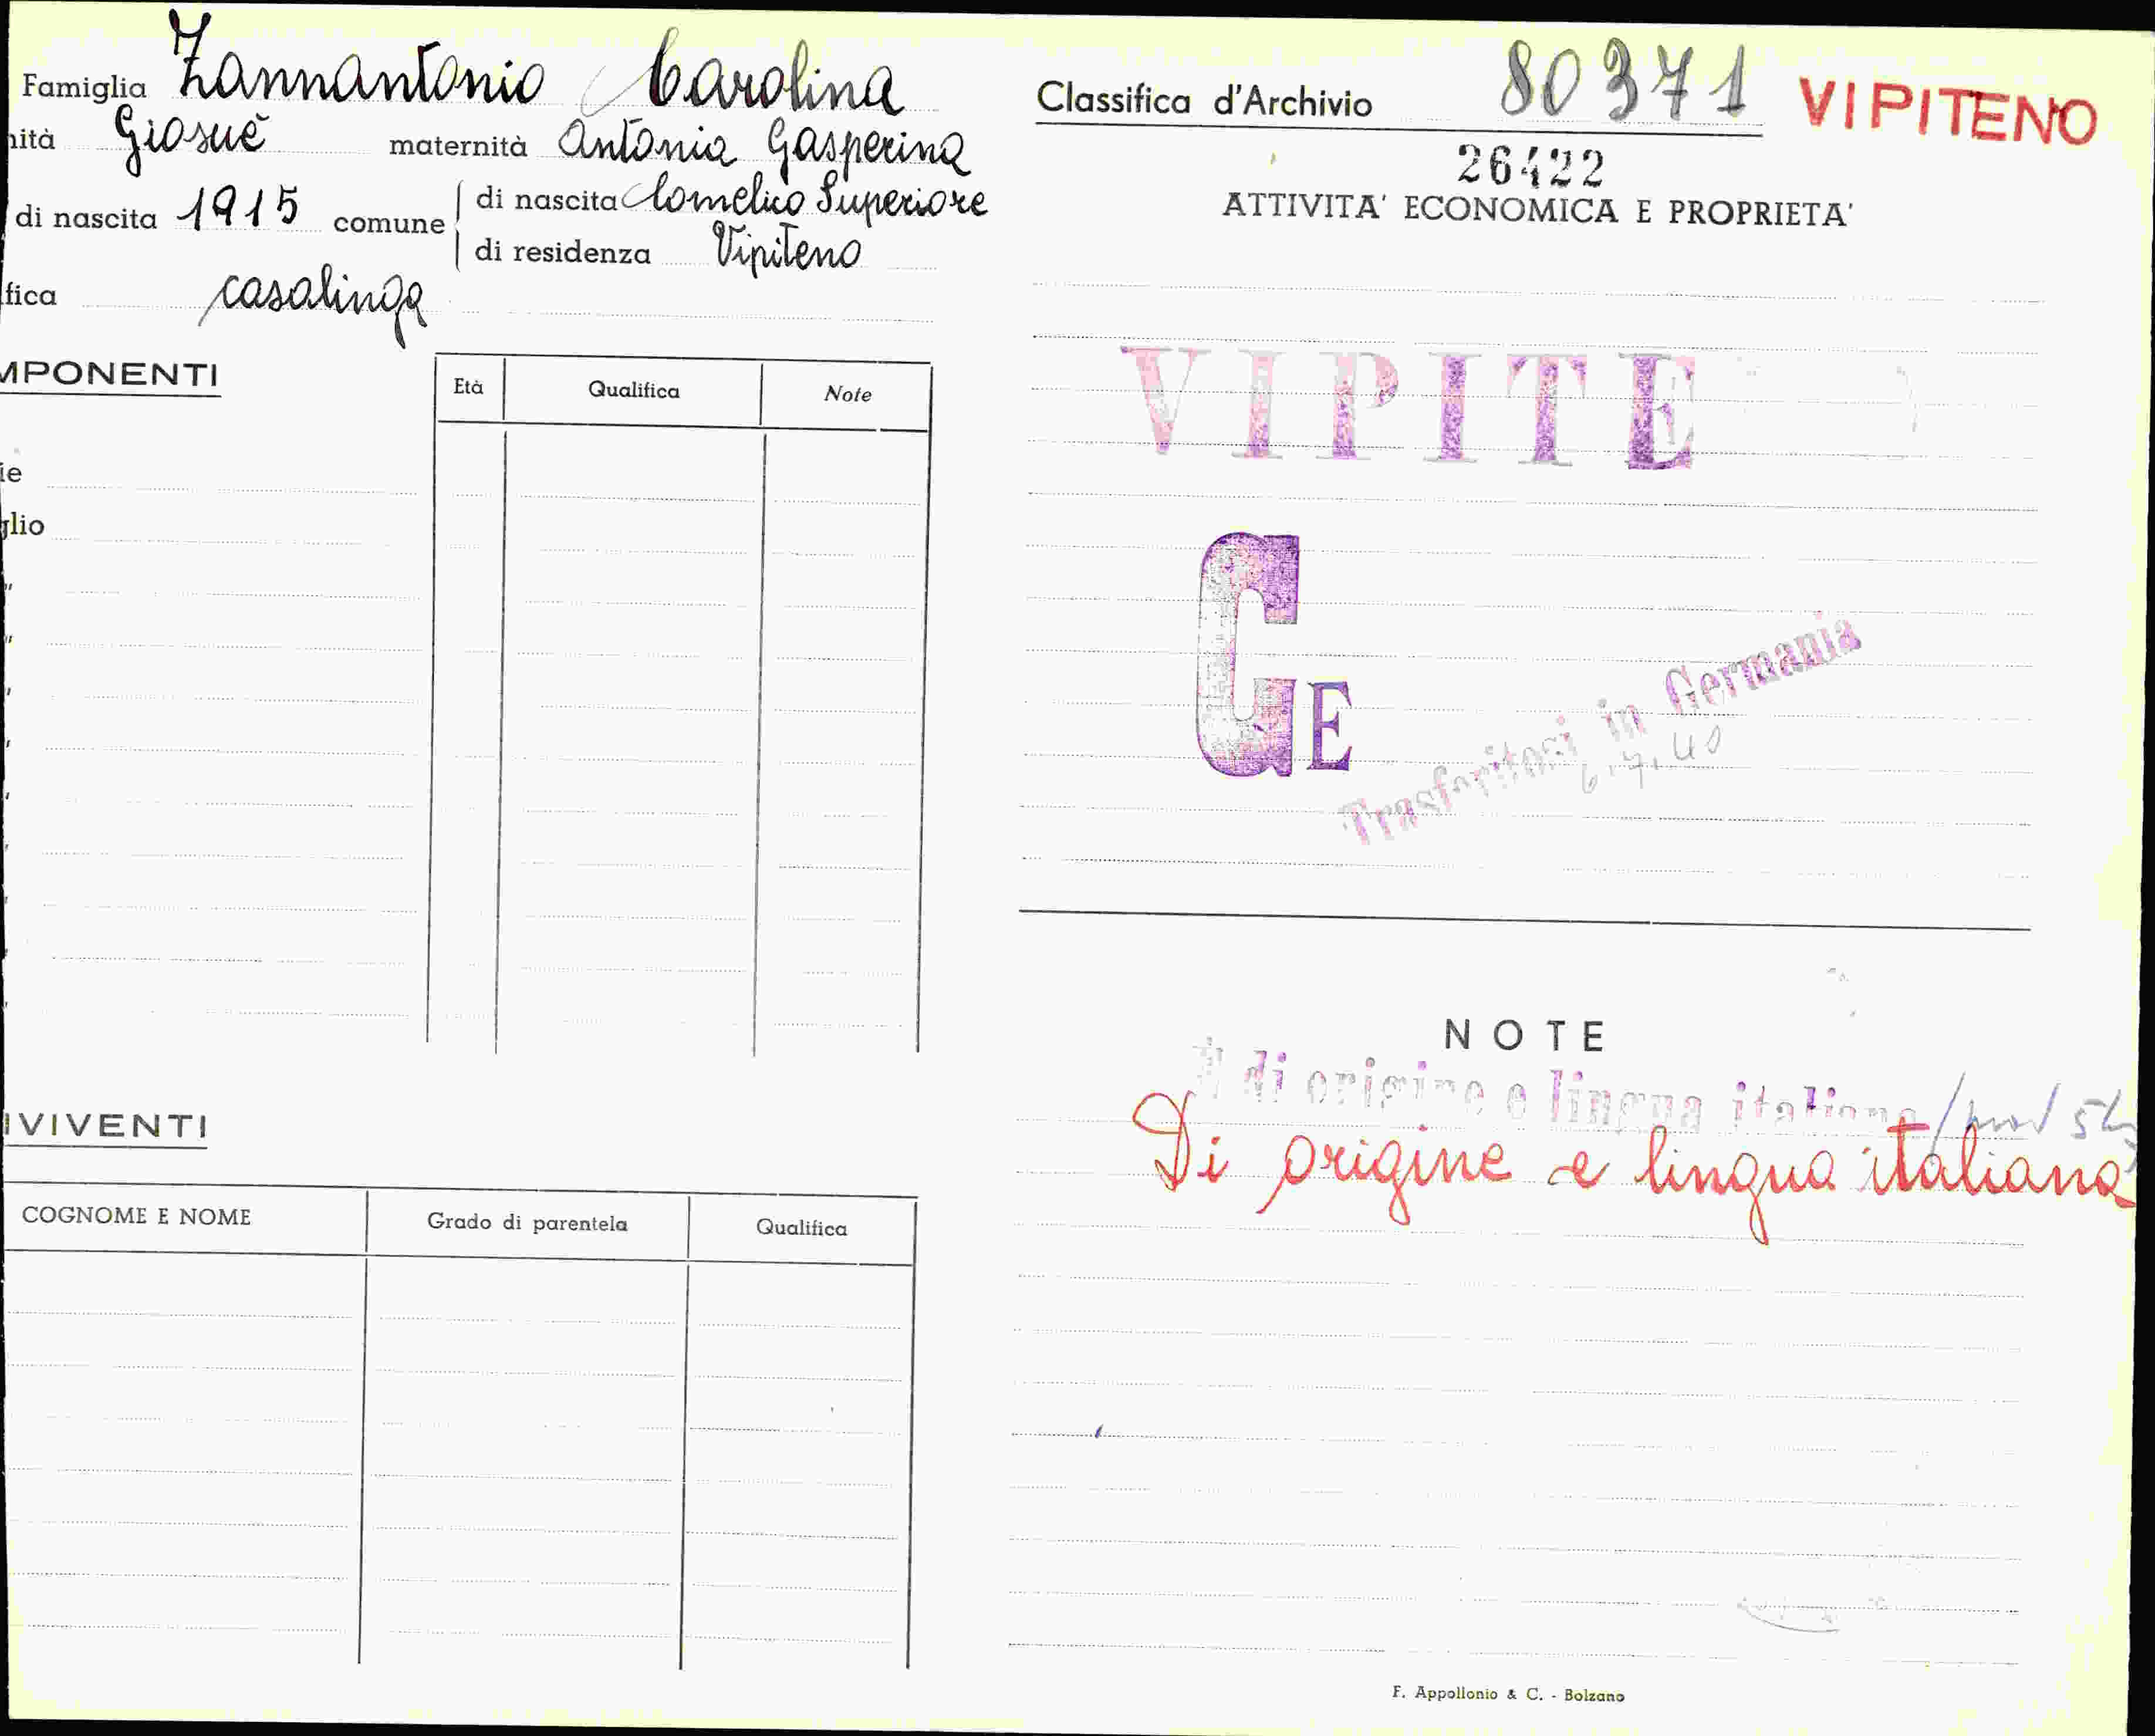 Famiglia Zannantonio Carolina
nità Giosuè maternità Antonia Gasperina
di nascita 1915 comune di nascita Comelico Superiore
di residenza Vipiteno
fica casalinga
MPONENTI
Età Qualifica Note
ie
glio
"
"
"
"
"
"
"
"
"
IVIVENTI
COGNOME E NOME Grado di parentela Qualifica
Classifica d'Archivio 80371 VIPITENO
26422
ATTIVITA' ECONOMICA E PROPRIETA'
VIPITE
G E
Trasferitasi in Germania
6.7.40
NOTE
È di origine e lingua italiana
Di origine e lingua italiana
F. Appollonio & C. - Bolzano